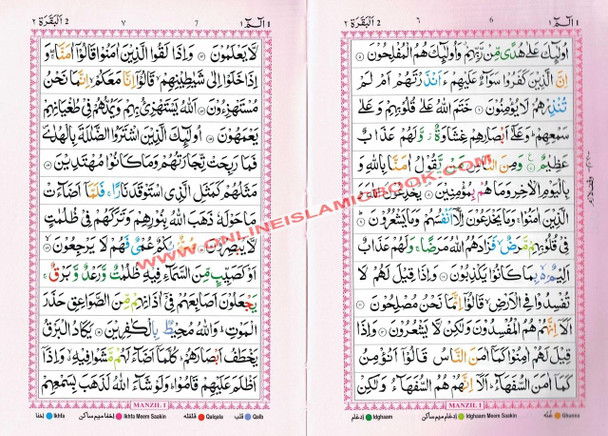 البقرة 2 ٢
٦
6
الٓمّٓ ١
اُولٰٓئِكَ عَلٰى هُدًى مِّنْ رَّبِّهِمْ وَاُولٰٓئِكَ هُمُ الْمُفْلِحُوْنَ
اِنَّ الَّذِيْنَ كَفَرُوْا سَوَآءٌ عَلَيْهِمْ ءَاَنْذَرْتَهُمْ اَمْ لَمْ
تُنْذِرْهُمْ لَا يُؤْمِنُوْنَ خَتَمَ اللّٰهُ عَلٰى قُلُوْبِهِمْ وَعَلٰى
سَمْعِهِمْ وَعَلٰٓى اَبْصَارِهِمْ غِشَاوَةٌ وَّلَهُمْ عَذَابٌ
عَظِيْمٌ وَمِنَ النَّاسِ مَنْ يَّقُوْلُ اٰمَنَّا بِاللّٰهِ وَ
بِالْيَوْمِ الْاٰخِرِ وَمَا هُمْ بِمُؤْمِنِيْنَ يُخٰدِعُوْنَ اللّٰهَ وَ
الَّذِيْنَ اٰمَنُوْا وَمَا يَخْدَعُوْنَ اِلَّآ اَنْفُسَهُمْ وَمَا يَشْعُرُوْنَ
فِيْ قُلُوْبِهِمْ مَّرَضٌ فَزَادَهُمُ اللّٰهُ مَرَضًا وَلَهُمْ عَذَابٌ
اَلِيْمٌ بِمَا كَانُوْا يَكْذِبُوْنَ وَاِذَا قِيْلَ لَهُمْ لَا
تُفْسِدُوْا فِي الْاَرْضِ قَالُوْٓا اِنَّمَا نَحْنُ مُصْلِحُوْنَ
اَلَآ اِنَّهُمْ هُمُ الْمُفْسِدُوْنَ وَلٰكِنْ لَّا يَشْعُرُوْنَ وَاِذَا
قِيْلَ لَهُمْ اٰمِنُوْا كَمَآ اٰمَنَ النَّاسُ قَالُوْٓا اَنُؤْمِنُ
كَمَآ اٰمَنَ السُّفَهَآءُ اَلَآ اِنَّهُمْ هُمُ السُّفَهَآءُ وَلٰكِنْ
MANZIL 1
غنه Ghunna
ادغام میم ساکن Idghaam Meem Saakin
ادغام Idghaam
البقرة 2 ٢
٧
7
الٓمّٓ ١
لَّا يَعْلَمُوْنَ وَاِذَا لَقُوا الَّذِيْنَ اٰمَنُوْا قَالُوْٓا اٰمَنَّا وَ
اِذَا خَلَوْا اِلٰى شَيٰطِيْنِهِمْ قَالُوْٓا اِنَّا مَعَكُمْ اِنَّمَا نَحْنُ
مُسْتَهْزِءُوْنَ اَللّٰهُ يَسْتَهْزِئُ بِهِمْ وَيَمُدُّهُمْ فِيْ طُغْيَانِهِمْ
يَعْمَهُوْنَ اُولٰٓئِكَ الَّذِيْنَ اشْتَرَوُا الضَّلٰلَةَ بِالْهُدٰى
فَمَا رَبِحَتْ تِّجَارَتُهُمْ وَمَا كَانُوْا مُهْتَدِيْنَ
مَثَلُهُمْ كَمَثَلِ الَّذِى اسْتَوْقَدَ نَارًا فَلَمَّآ اَضَآءَتْ
مَا حَوْلَهٗ ذَهَبَ اللّٰهُ بِنُوْرِهِمْ وَتَرَكَهُمْ فِيْ ظُلُمٰتٍ
لَّا يُبْصِرُوْنَ صُمٌّۢ بُكْمٌ عُمْيٌ فَهُمْ لَا يَرْجِعُوْنَ
اَوْ كَصَيِّبٍ مِّنَ السَّمَآءِ فِيْهِ ظُلُمٰتٌ وَّرَعْدٌ وَّبَرْقٌ
يَجْعَلُوْنَ اَصَابِعَهُمْ فِيْٓ اٰذَانِهِمْ مِّنَ الصَّوَاعِقِ حَذَرَ
الْمَوْتِ وَاللّٰهُ مُحِيْطٌۢ بِالْكٰفِرِيْنَ يَكَادُ الْبَرْقُ
يَخْطَفُ اَبْصَارَهُمْ كُلَّمَآ اَضَآءَ لَهُمْ مَّشَوْا فِيْهِ وَاِذَآ
اَظْلَمَ عَلَيْهِمْ قَامُوْا وَلَوْ شَآءَ اللّٰهُ لَذَهَبَ بِسَمْعِهِمْ
MANZIL 1
قلب Qalb
قلقله Qalqala
اخفا میم ساکن Ikhfa Meem Saakin
اخفا Ikhfa
WWW.ONLINEISLAMICBOOK.COM